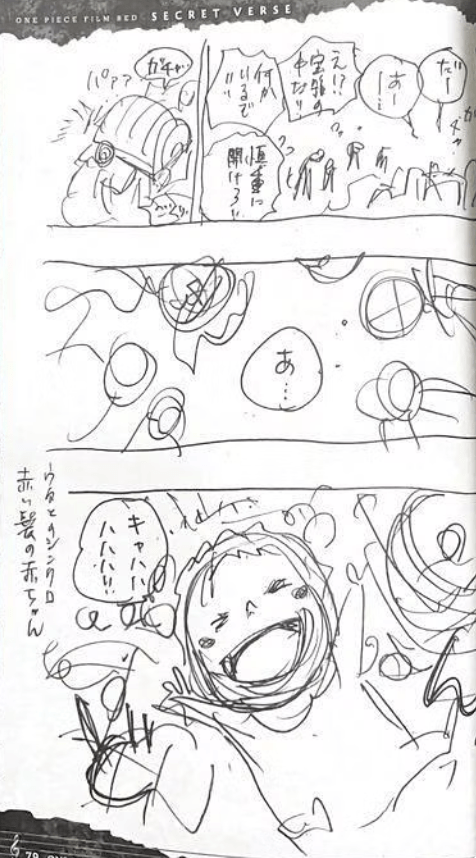 ONE PIECE FILM RED SECRET VERSE
だー
あー
…
え!?
宝箱の
中だ!!
何か
いるで
!!
慎重に
開けろ!!
ガチャ
パァァ
あ…
キャハハ
ハハハ!!
ウタとのシンクロ
赤い髪の赤ちゃん
78